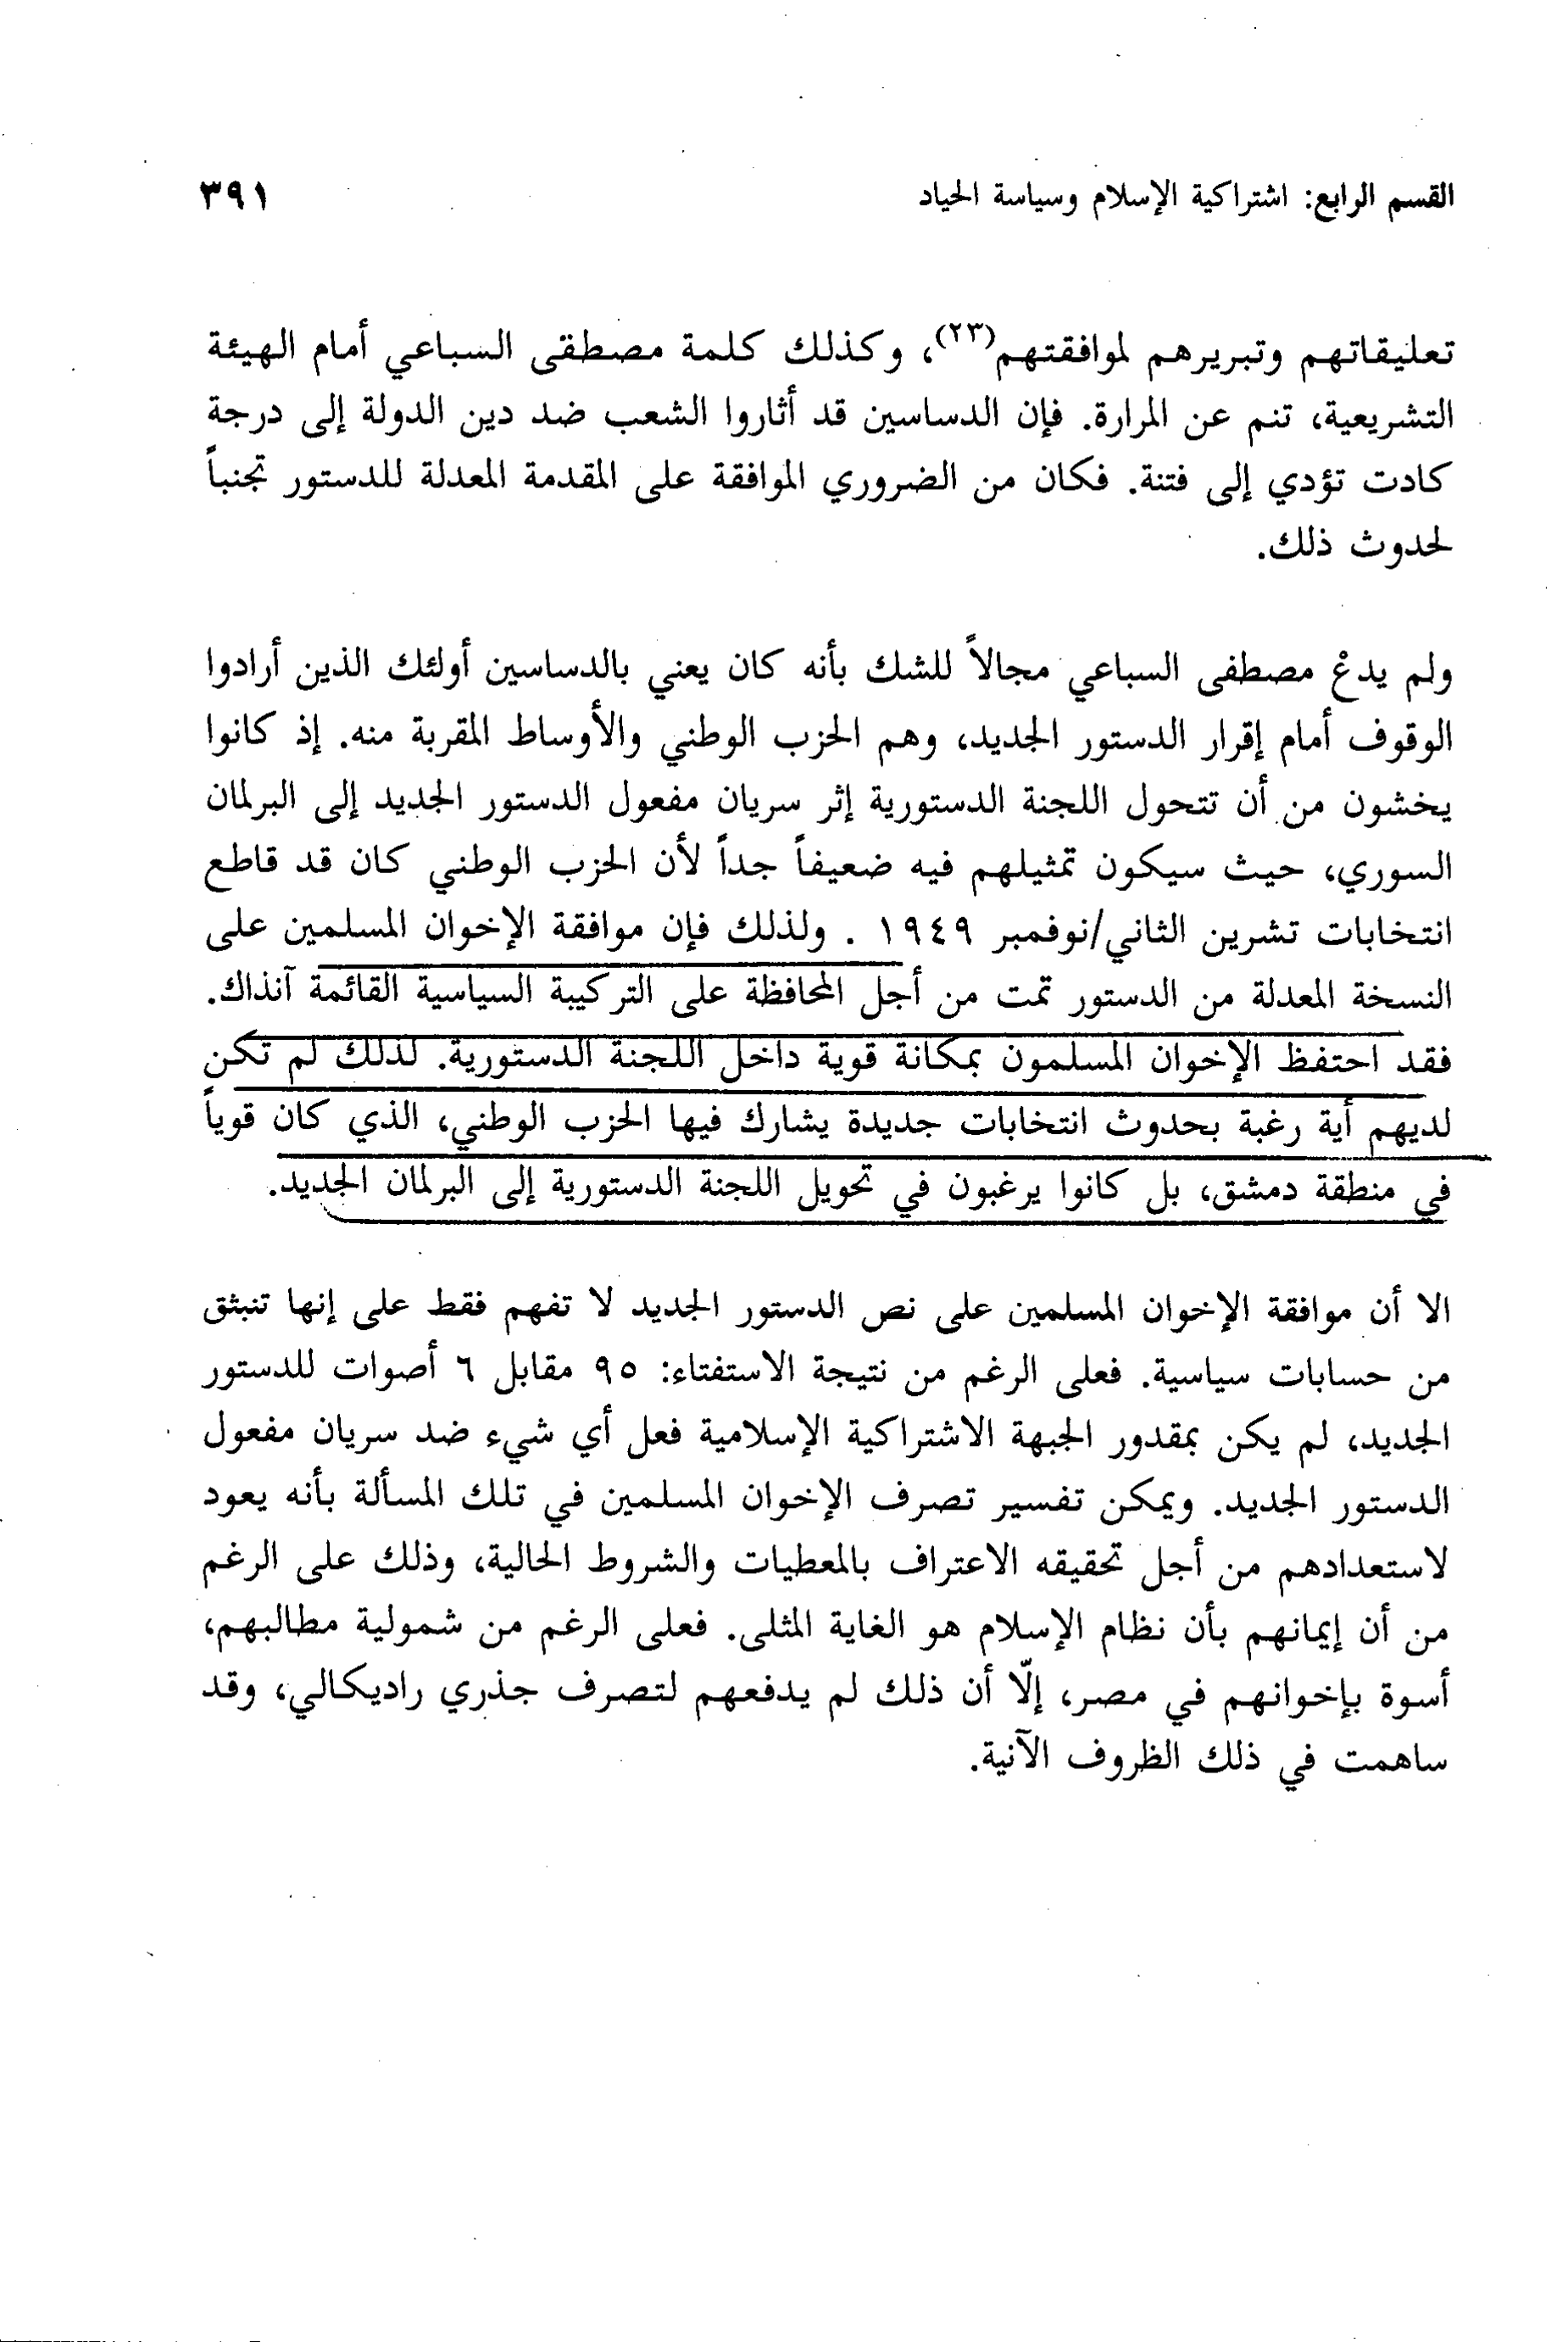 القسم الرابع: اشتراكية الإسلام وسياسة الحياد ٣٩١
تعليقاتهم وتبريرهم لموافقتهم(٢٣)، وكذلك كلمة مصطقى السباعي أمام الهيئة
التشريعية، تنم عن المرارة. فإن الدساسين قد أثاروا الشعب ضد دين الدولة إلى درجة
كادت تؤدي إلى فتنة. فكان من الضروري الموافقة على المقدمة المعدلة للدستور تجنباً
لحدوث ذلك.
ولم يدعْ مصطفى السباعي مجالاً للشك بأنه كان يعني بالدساسين أولئك الذين أرادوا
الوقوف أمام إقرار الدستور الجديد، وهم الحزب الوطني والأوساط المقربة منه. إذ كانوا
يخشون من أن تتحول اللجنة الدستورية إثر سريان مفعول الدستور الجديد إلى البرلمان
السوري، حيث سيكون تمثيلهم فيه ضعيفاً جداً لأن الحزب الوطني كان قد قاطع
انتخابات تشرين الثاني/نوفمبر ١٩٤٩ . ولذلك فإن موافقة الإخوان المسلمين على
النسخة المعدلة من الدستور تمت من أجل المحافظة على التركيبة السياسية القائمة آنذاك.
فقد احتفظ الإخوان المسلمون بمكانة قوية داخل اللجنة الدستورية. لذلك لم تكن
لديهم أية رغبة بحدوث انتخابات جديدة يشارك فيها الحزب الوطني، الذي كان قوياً
في منطقة دمشق، بل كانوا يرغبون في تحويل اللجنة الدستورية إلى البرلمان الجديد.
الا أن موافقة الإخوان المسلمين على نص الدستور الجديد لا تفهم فقط على إنها تنبثق
من حسابات سياسية. فعلى الرغم من نتيجة الاستفتاء: ٩٥ مقابل ٦ أصوات للدستور
الجديد، لم يكن بمقدور الجبهة الاشتراكية الإسلامية فعل أي شيء ضد سريان مفعول
الدستور الجديد. ويمكن تفسير تصرف الإخوان المسلمين في تلك المسألة بأنه يعود
لاستعدادهم من أجل تحقيقه الاعتراف بالمعطيات والشروط الحالية، وذلك على الرغم
من أن إيمانهم بأن نظام الإسلام هو الغاية المثلى. فعلى الرغم من شمولية مطالبهم،
أسوة بإخوانهم في مصر، إلّا أن ذلك لم يدفعهم لتصرف جذري راديكالي، وقد
ساهمت في ذلك الظروف الآنية.